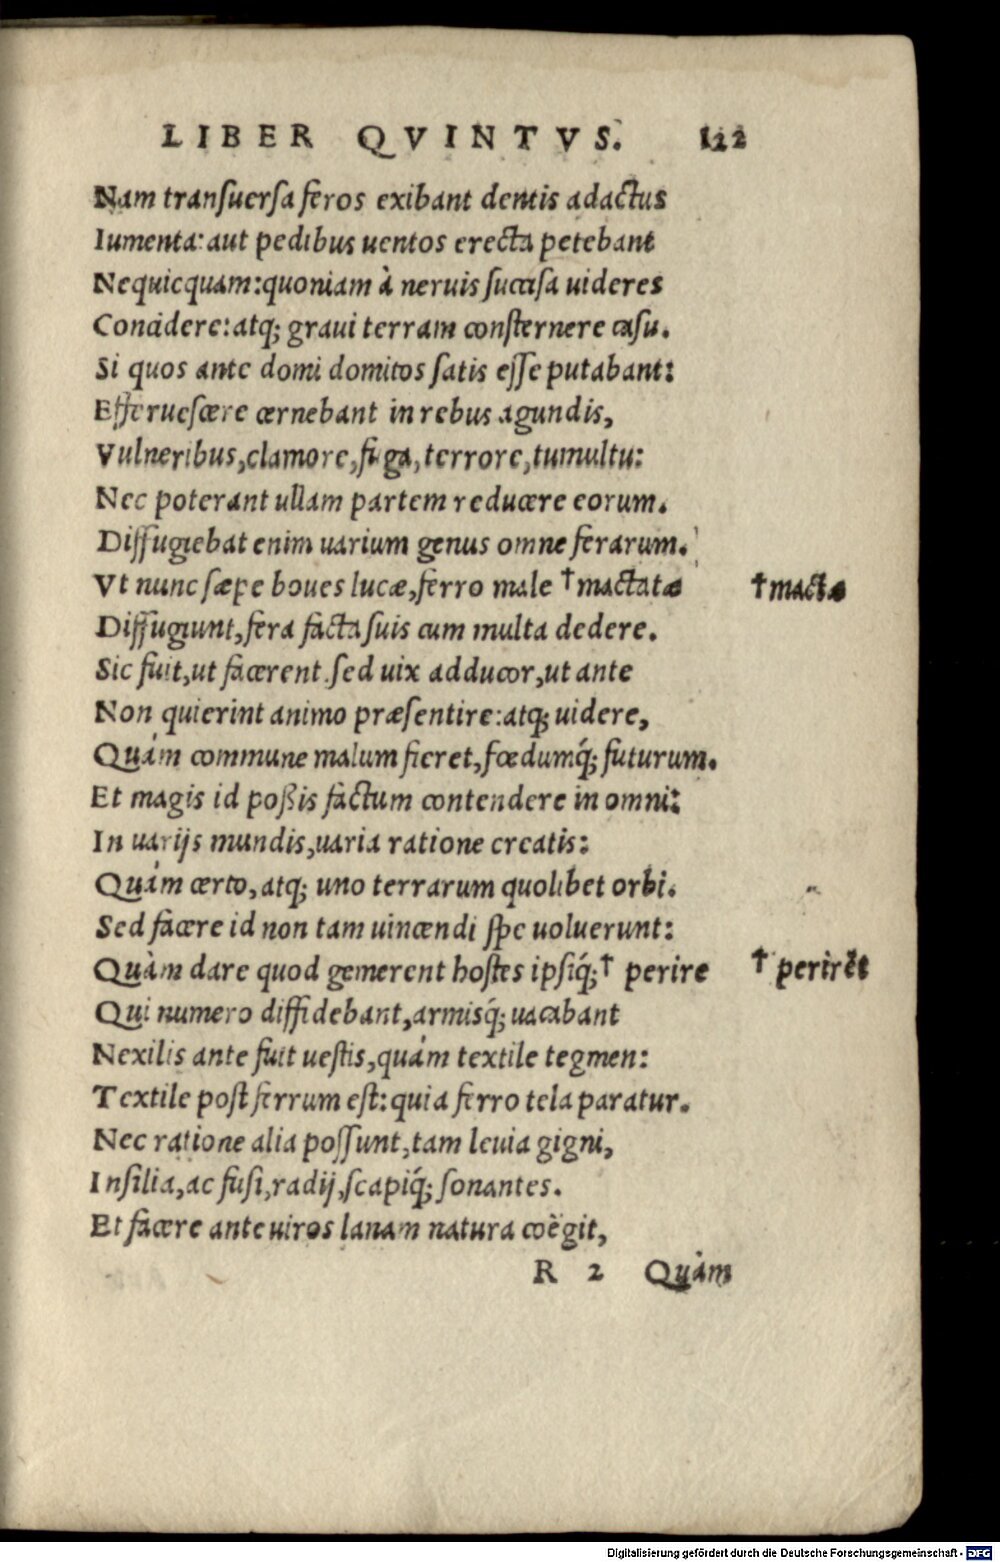 LIBER QVINTVS. 122
Nam transuersa feros exibant dentis adactus
Iumenta: aut pedibus uentos erecta petebant
Nequicquam: quoniam à neruis succisa uideres
Concidere: atq; graui terram consternere casu.
Si quos ante domi domitos satis esse putabant:
Efferuescere cernebant in rebus agundis,
Vulneribus, clamore, fuga, terrore, tumultu:
Nec poterant ullam partem reducere eorum.
Diffugiebat enim uarium genus omne ferarum.
Vt nunc sæpe boues lucæ, ferro male †mactatæ †mactæ
Diffugiunt, fera facta suis cum multa dedere.
Sic fuit, ut facerent. sed uix adducor, ut ante
Non quierint animo præsentire: atq; uidere,
Quám commune malum fieret, fœdumq́; futurum.
Et magis id poßis factum contendere in omni:
In uarijs mundis, uaria ratione creatis:
Quám certo, atq; uno terrarum quolibet orbi.
Sed facere id non tam uincendi spe uoluerunt:
Quàm dare quod gemerent hostes ipsiq́;† perire † perirēt
Qui numero diffidebant, armisq́; uacabant
Nexilis ante fuit uestis, quám textile tegmen:
Textile post ferrum est: quia ferro tela paratur.
Nec ratione alia possunt, tam leuia gigni,
Insilia, ac fusi, radij, scapiq́; sonantes.
Et facere ante uiros lanam natura coëgit,
R 2 Quàm
Digitalisierung gefördert durch die Deutsche Forschungsgemeinschaft - DFG